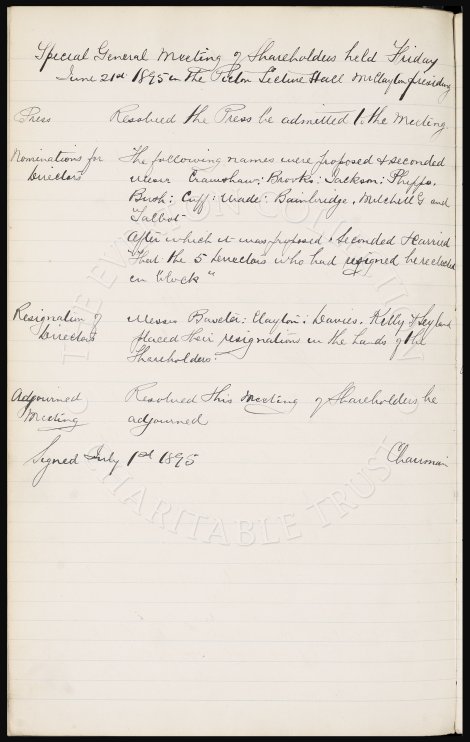 Special General Meeting of Shareholders held Friday
June 21st 1895 in The Picton Lecture Hall Mr Clayton presiding
Press Resolved the Press be admitted to the Meeting.
Nominations for The following names were proposed & seconded
Directors Messrs Crawshaw: Brooks: Jackson: Phipps.
Bush: Cuff: Wade: Bainbridge, Mitchell G and
Talbot
After which it was proposed, Seconded & carried
"That the 5 Directors who had resigned be reelected
en "block"
Resignation of Messrs Baxter: Clayton: Davies. Kelly & Leyland
Directors placed their resignations in the hands of the
Shareholders.
Adjourned Resolved This Meeting of Shareholders be
Meeting adjourned
Signed July 1st 1895 Chairman
THE EVERTON COLLECTION
CHARITABLE TRUST